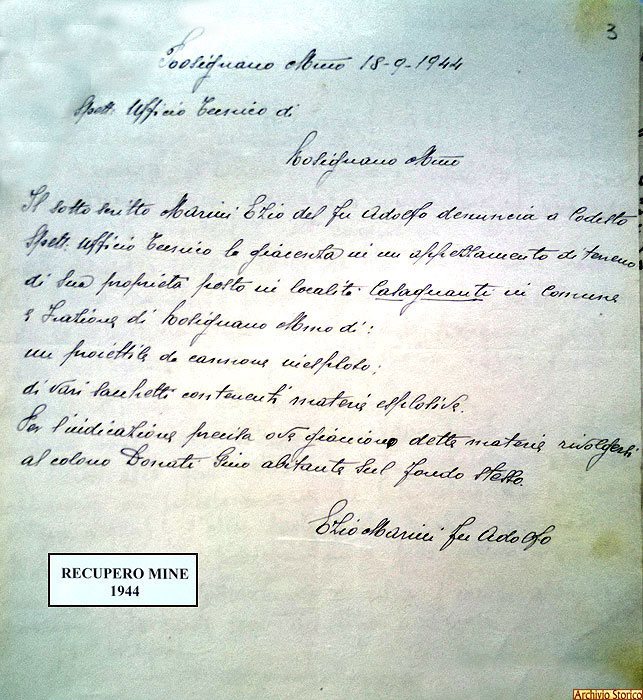 3
Rosignano Mmo 18-9-1944
Spett. Ufficio Tecnico di
Rosignano Mmo
Il sotto scritto Marini Ezio del fu Adolfo denuncia a Codesto
Spett. Ufficio Tecnico la giacenza in un appezzamento di terreno
di sua proprietà posto in località Casagnanti in Comune
e Frazione di Rosignano Mmo di:
un proiettile da cannone inesploso;
di vari sacchetti contenenti materia esplosiva.
Per l'indicazione precisa ove giacciono dette materie rivolgersi
al colono Donati Gino abitante sul fondo stesso.
Ezio Marini fu Adolfo
RECUPERO MINE
1944
Archivio Storico